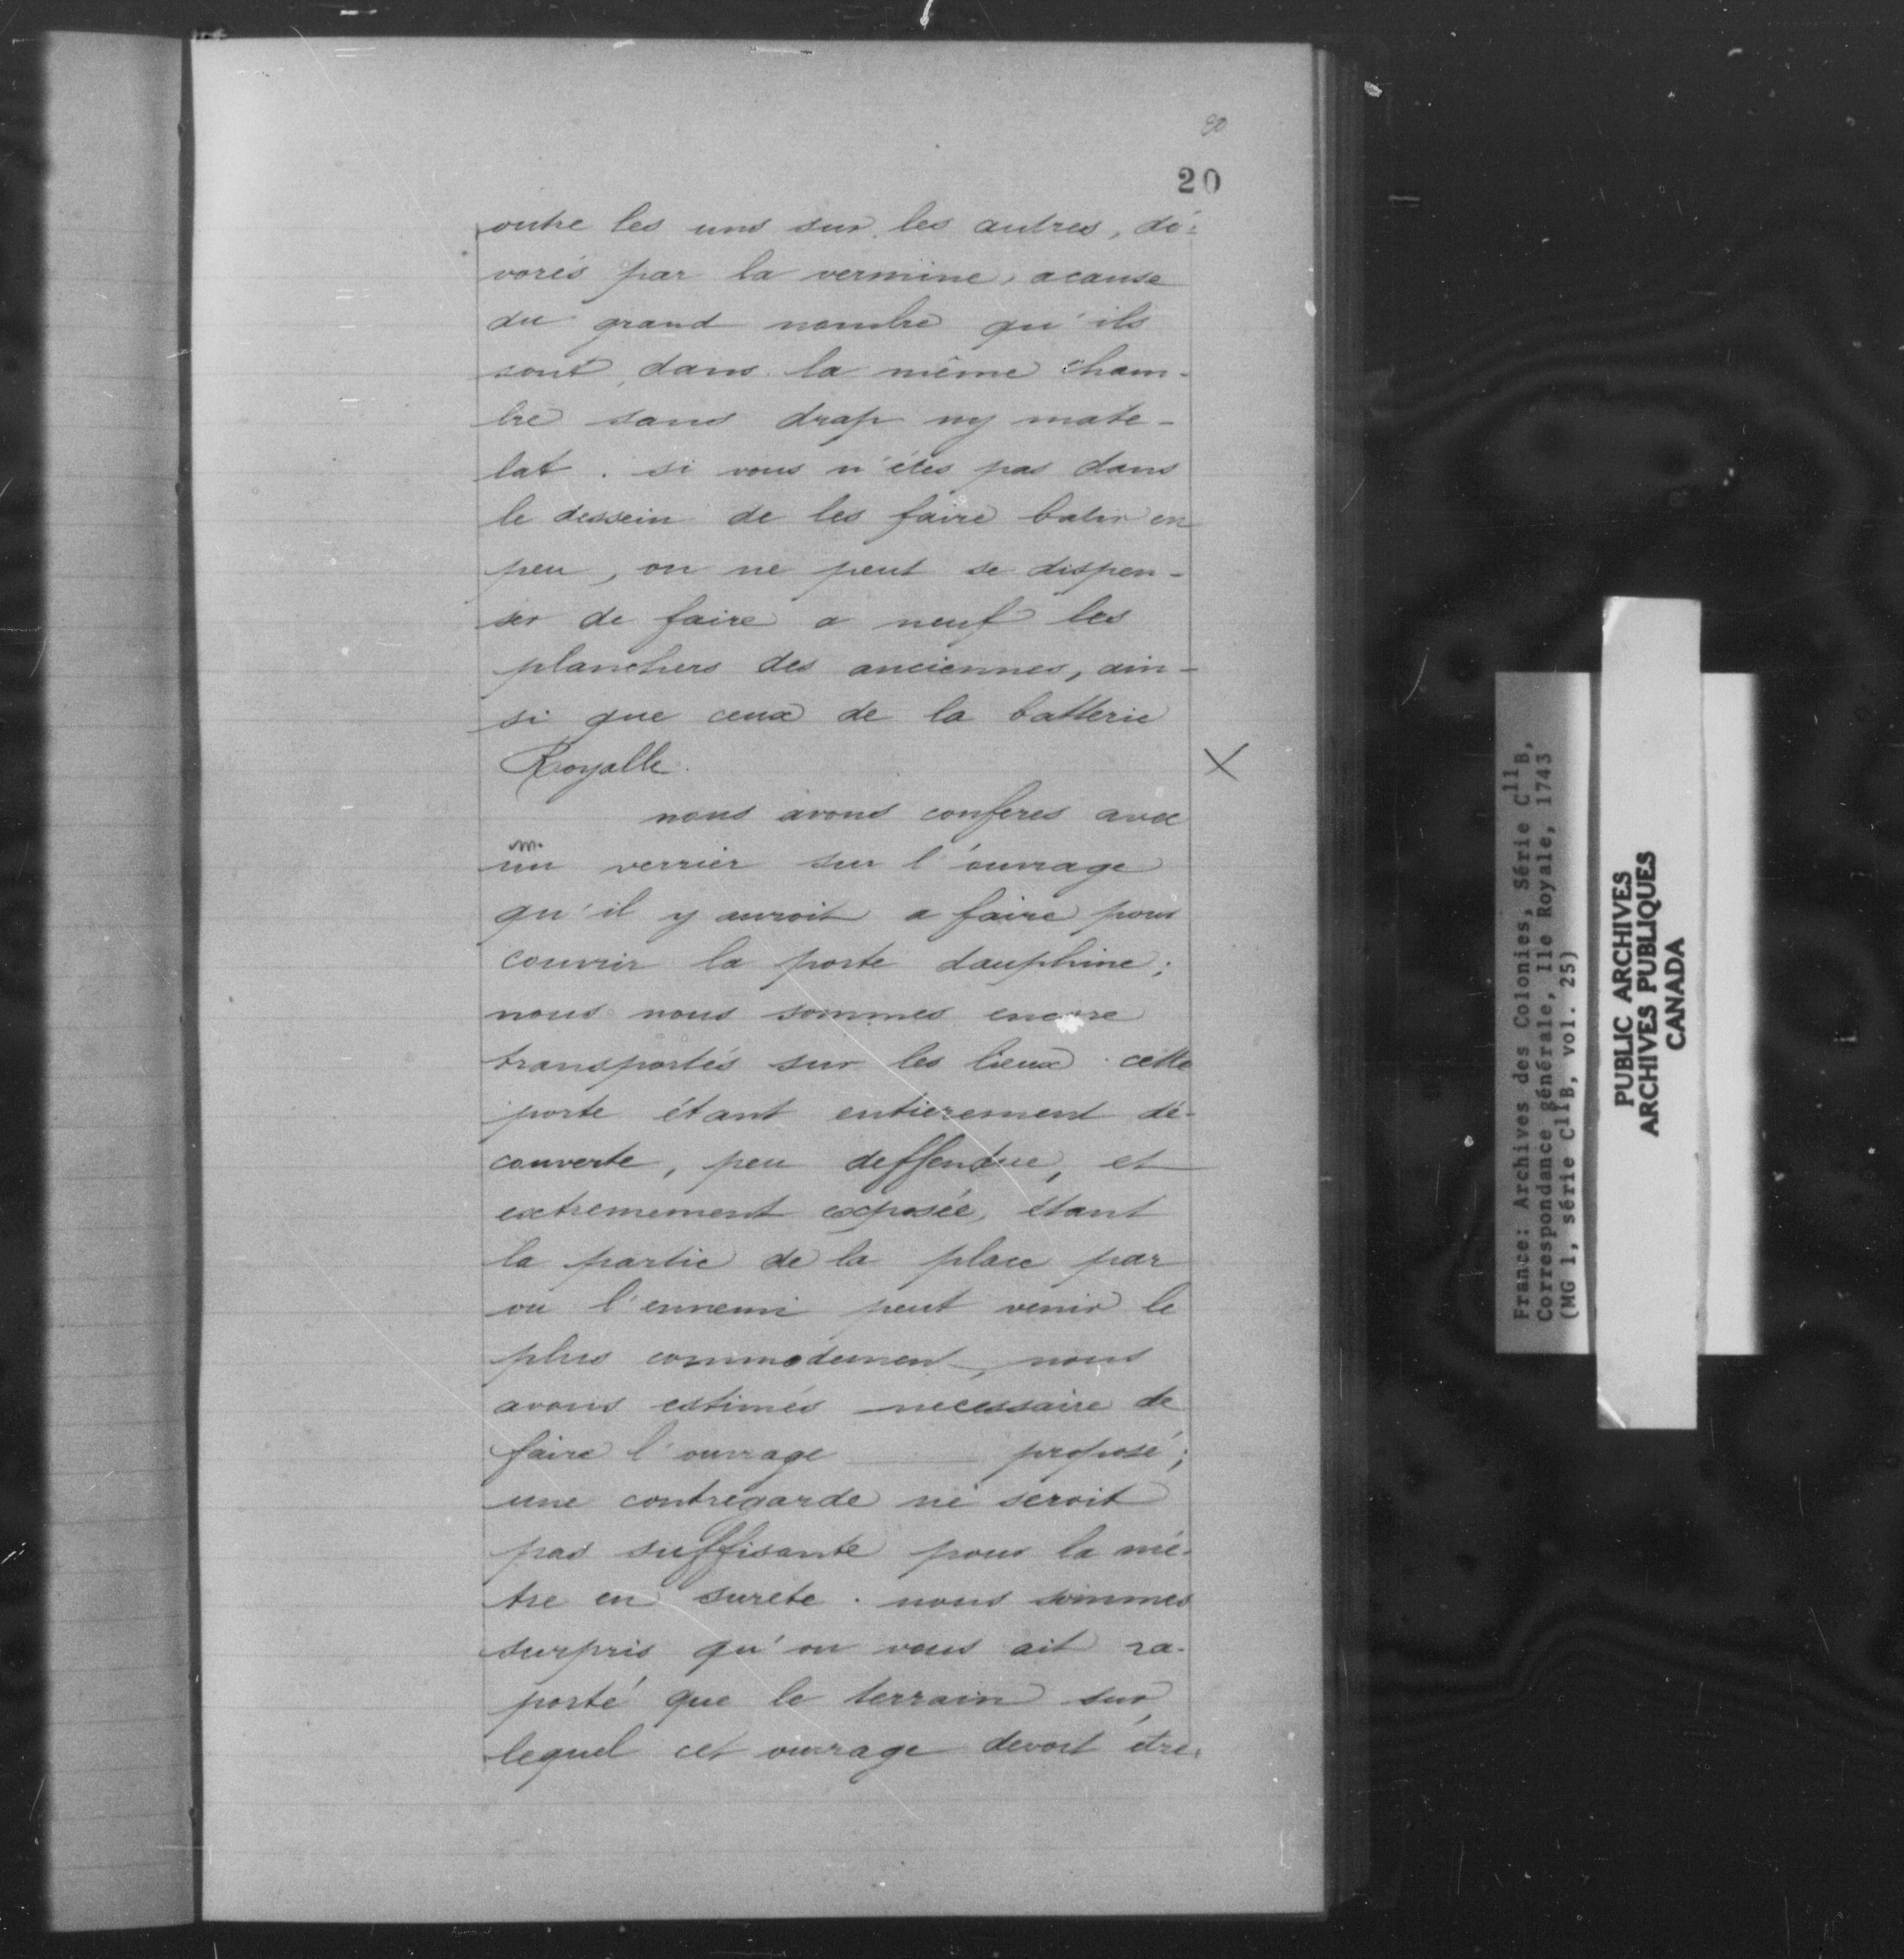 20
outre les uns sur les autres, dé-
vorés par la vermine, acause
du grand nombre qu'ils
sont, dans la même cham-
bre sans drap ny mate-
lat. si vous n'étes pas dans
le dessein de les faire batir en
peu, on ne peut se dispen-
ser de faire a neuf les
planchers des anciennes, ain-
si que ceux de la batterie
Royalle.
X
nous avons conferes avec
m.
un verrier sur l'ouvrage
qu'il y auroit a faire pour
couvrir la porte dauphine;
nous nous sommes encore
transportés sur les lieux. cette
porte étant entierement dé-
couverte, peu deffendue, et
extremement exposée, étant
la partie de la place par
ou l'ennemi peut venir le
plus commodement, nous
avons estimés necessaire de
faire l'ouvrage ___ proposé;
une contregarde ne seroit
pas suffisante pour la mé-
tre en sureté. nous sommes
surpris qu'on vous ait ra-
porté que le terrain sur
lequel cet ouvrage devoit étre
France: Archives des Colonies, Série C11B,
Correspondance générale, Ile Royale, 1743
(MG 1, série C11B, vol. 25)
PUBLIC ARCHIVES
ARCHIVES PUBLIQUES
CANADA